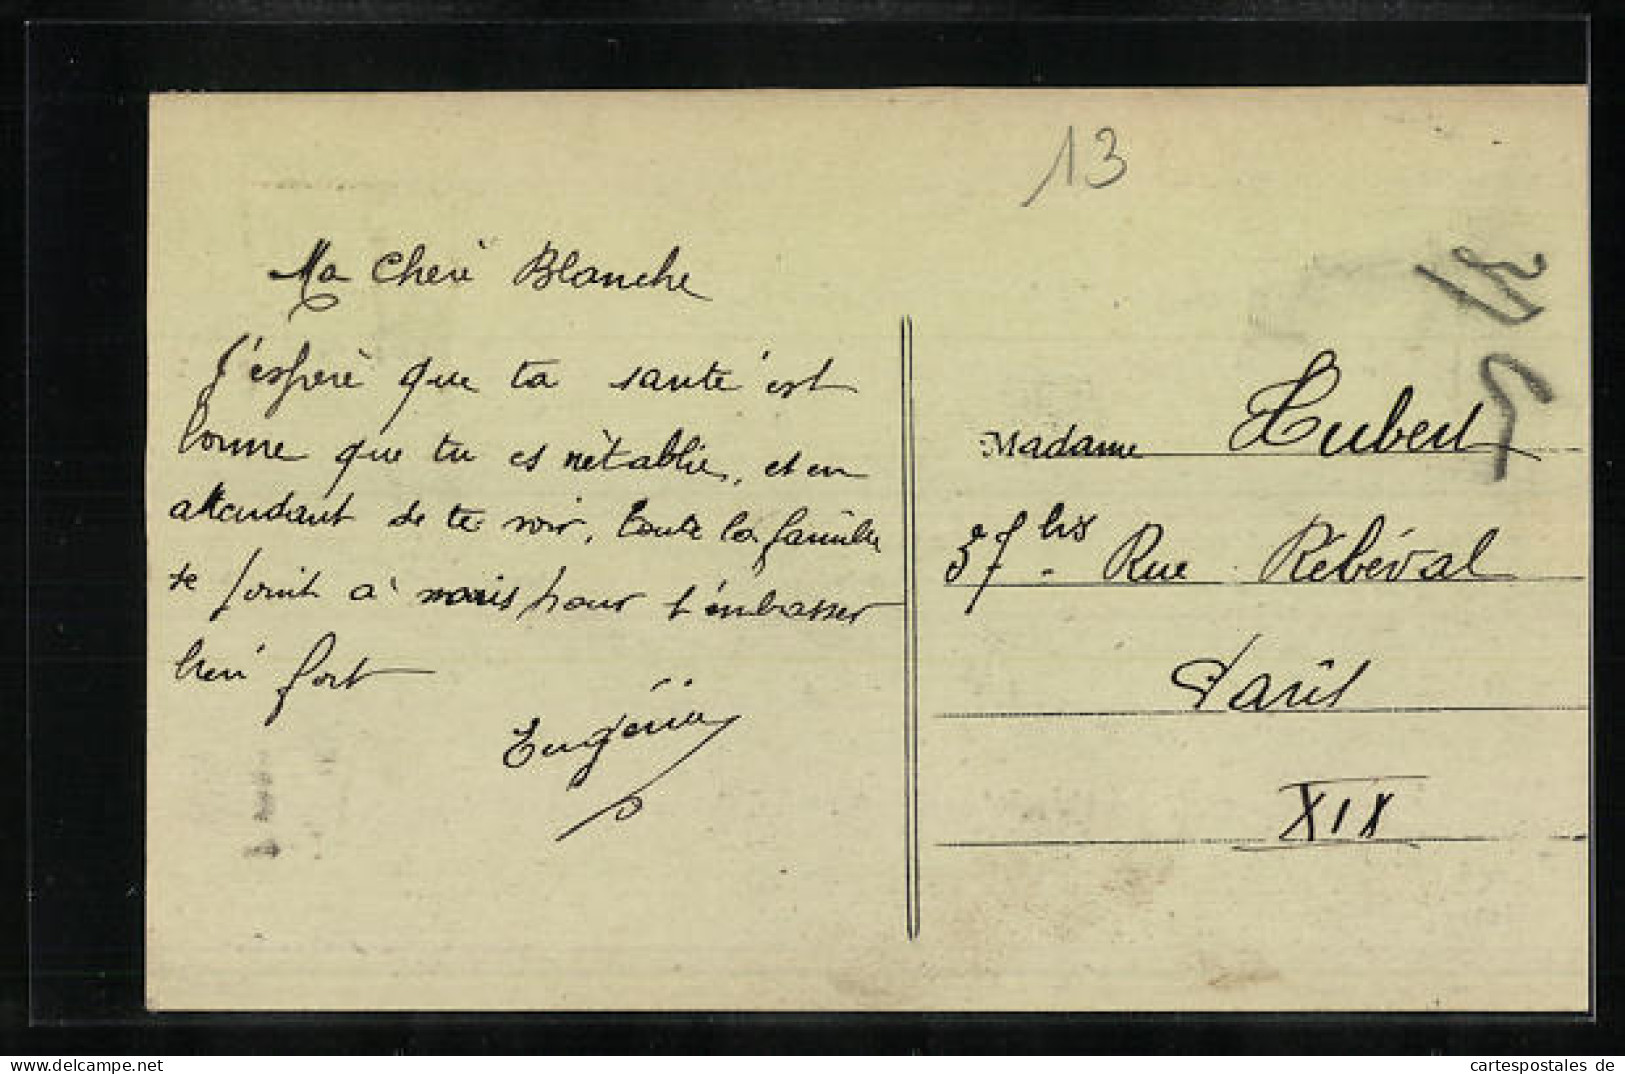 13
Ma Cherè Blanche
J'esperè que ta santé est
bonne que tu es rétablie, et en
attendant de te voir, toute la famille
se joint à nous pour t'émbrasser
bien fort
Eugénie
Madame Hubert
37 bis Rue Rébéval
Paris
XIX
www.cartespostales.de
cartespostales de